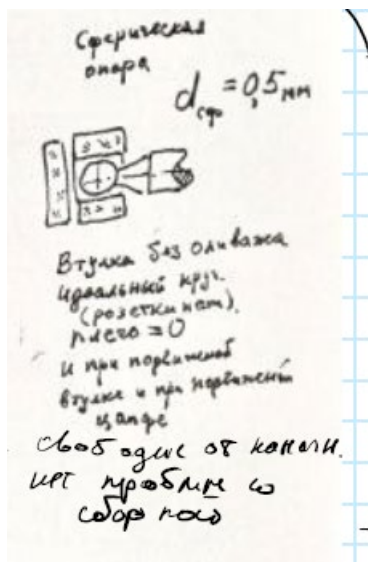 Сферическая
опора
d сф = 0,5 мм
Втулка без оливажа
идеальный круг.
(розетки нет).
плечо = 0
и при подвижной
втулке и при подвижной
цапфе
свободне от наклон.
нет проблем со
сборкой